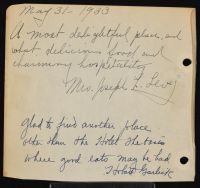 May 31 - 1933
A most delightful place, and
what delicious food and
charming hospitality
Mrs. Joseph L. Levy
Glad to find another place
other than the Hotel
where good eats may be had